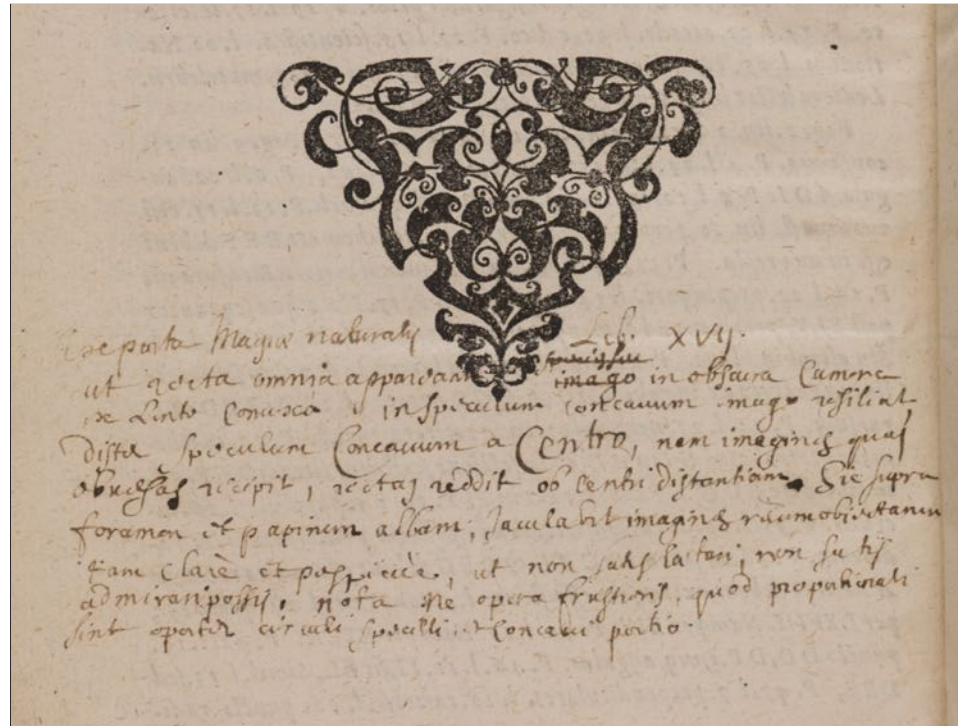 De porta Magiæ naturalis Lib. XVIJ.
ut recta omnia appareant imago in obscura Camera
De Linte Convexa in speculum concavum imago resiliat,
distet speculum Concavum a Centro, nam imagines quas
obversas recipit, rectas reddit ob Centri distantiam. Sie supra
foramen et papirum albam, Jaculabit imagines rerum obiectarum
tam Clare et perspicue, ut non satis lætari, non satis
admirari possis, nota ne opera frustreris, quod propotinali
sint oportet circuli speculi et Concavi portio